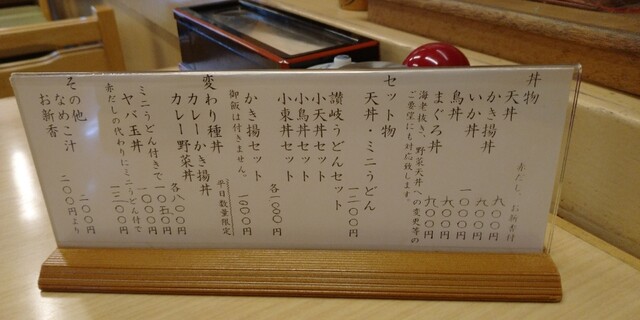 丼物
赤だし、お新香付
天丼 九〇〇円
かき揚丼 九〇〇円
いか丼 九〇〇円
鳥丼 一〇〇〇円
まぐろ丼 九〇〇円
海老抜き、野菜天丼への変更等の
ご要望にも対応致します。
セット物
天丼・ミニうどん 一二〇〇円
讃岐うどんセット
小天丼セット
小鳥丼セット
小東丼セット 各一〇〇〇円
かき揚セット 一〇〇〇円
御飯は付きません。
平日数量限定
変わり種丼
カレーかき揚丼
カレー野菜丼 各八〇〇円
ミニうどん付きで一〇五〇円
ヤバ玉丼 一〇〇〇円
赤だしの代わりにミニうどん付で
一二〇〇円
その他
なめこ汁 二〇〇円
お新香 二〇〇円より